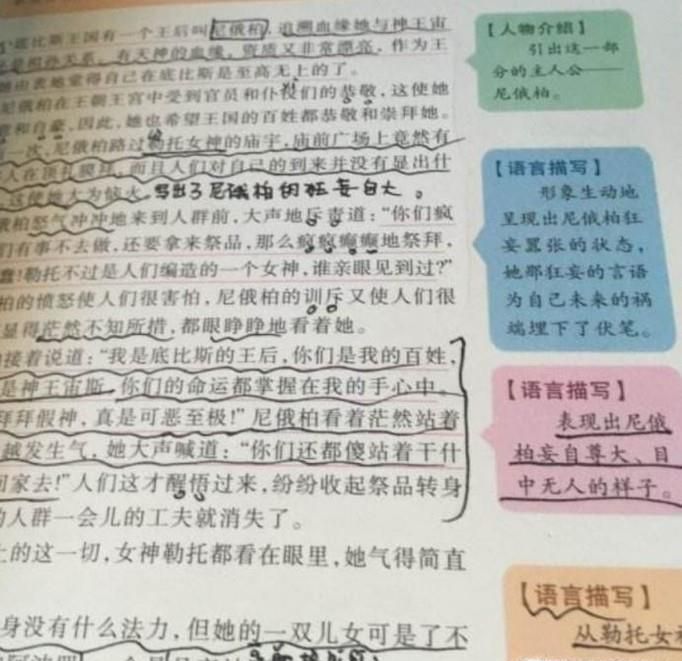 底比斯王国有一个王后叫尼俄柏,追溯血缘她与神王宙
是祖孙关系,有天神的血缘,资质又非常漂亮,作为王
她由衷地觉得自己在底比斯是至高无上的了。
尼俄柏在王朝王宫中受到官员和仆役们的恭敬,这使她
意和自豪,因此,她也希望王国的百姓都恭敬和崇拜她。
一次,尼俄柏路过勒托女神的庙宇,庙前广场上竟然有
人在顶礼膜拜,而且人们对自己的到来并没有显出什
这使她大为恼火。写出了尼俄柏的狂妄自大。
俄柏怒气冲冲地来到人群前,大声地斥责道:“你们疯
们有事不去做,还要拿来祭品,那么疯疯癫癫地祭拜,
蠢!勒托不过是人们编造的一个女神,谁亲眼见到过?”
柏的愤怒使人们很害怕,尼俄柏的训斥又使人们很
显得茫然不知所措,都眼睁睁地看着她。
接着说道:“我是底比斯的王后,你们是我的百姓,
是神王宙斯,你们的命运都掌握在我的手心中。
拜拜假神,真是可恶至极!”尼俄柏看着茫然站着
越发生气,她大声喊道:“你们还都傻站着干什
回家去!”人们这才醒悟过来,纷纷收起祭品转身
的人群一会儿的工夫就消失了。
上的这一切,女神勒托都看在眼里,她气得简直
身没有什么法力,但她的一双儿女可是了不
【人物介绍】
引出这一部
分的主人公——
尼俄柏。
【语言描写】
形象生动地
呈现出尼俄柏狂
妄嚣张的状态,
她那狂妄的言语
为自己未来的祸
端埋下了伏笔。
【语言描写】
表现出尼俄
柏妄自尊大、目
中无人的样子。
【语言描写】
从勒托女